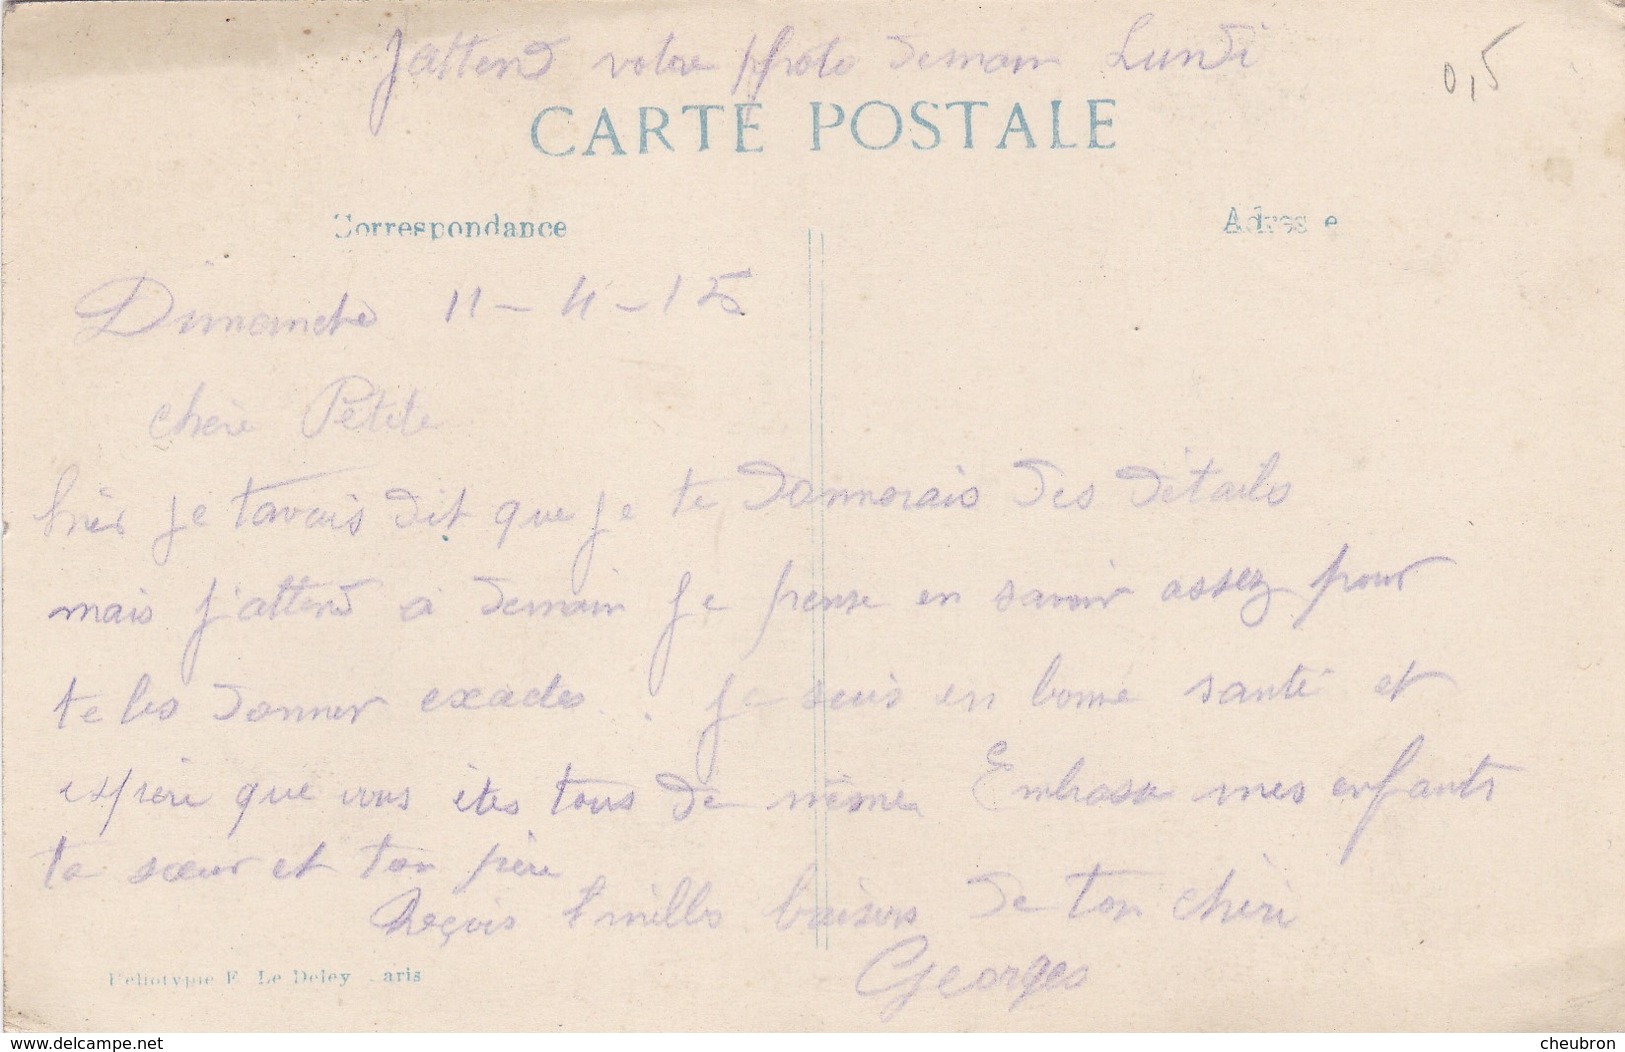 J'attend votre photo demain Lundi
0,5
CARTE POSTALE
Correspondance
Adresse
Dimanche 11-4-15
chère Petite
hier je tavais dit que je te donnerais des détails
mais j'attend a demain je pense en savoir assez pour
te les donner exactes. je suis en bonne santé et
espère que vous êtes tous de même Embrasse mes enfants
ta sœur et ton père
Reçois mille baisers de ton chéri
Georges
Héliotypie E. Le Deley Paris
www.delcampe.net
cheubron